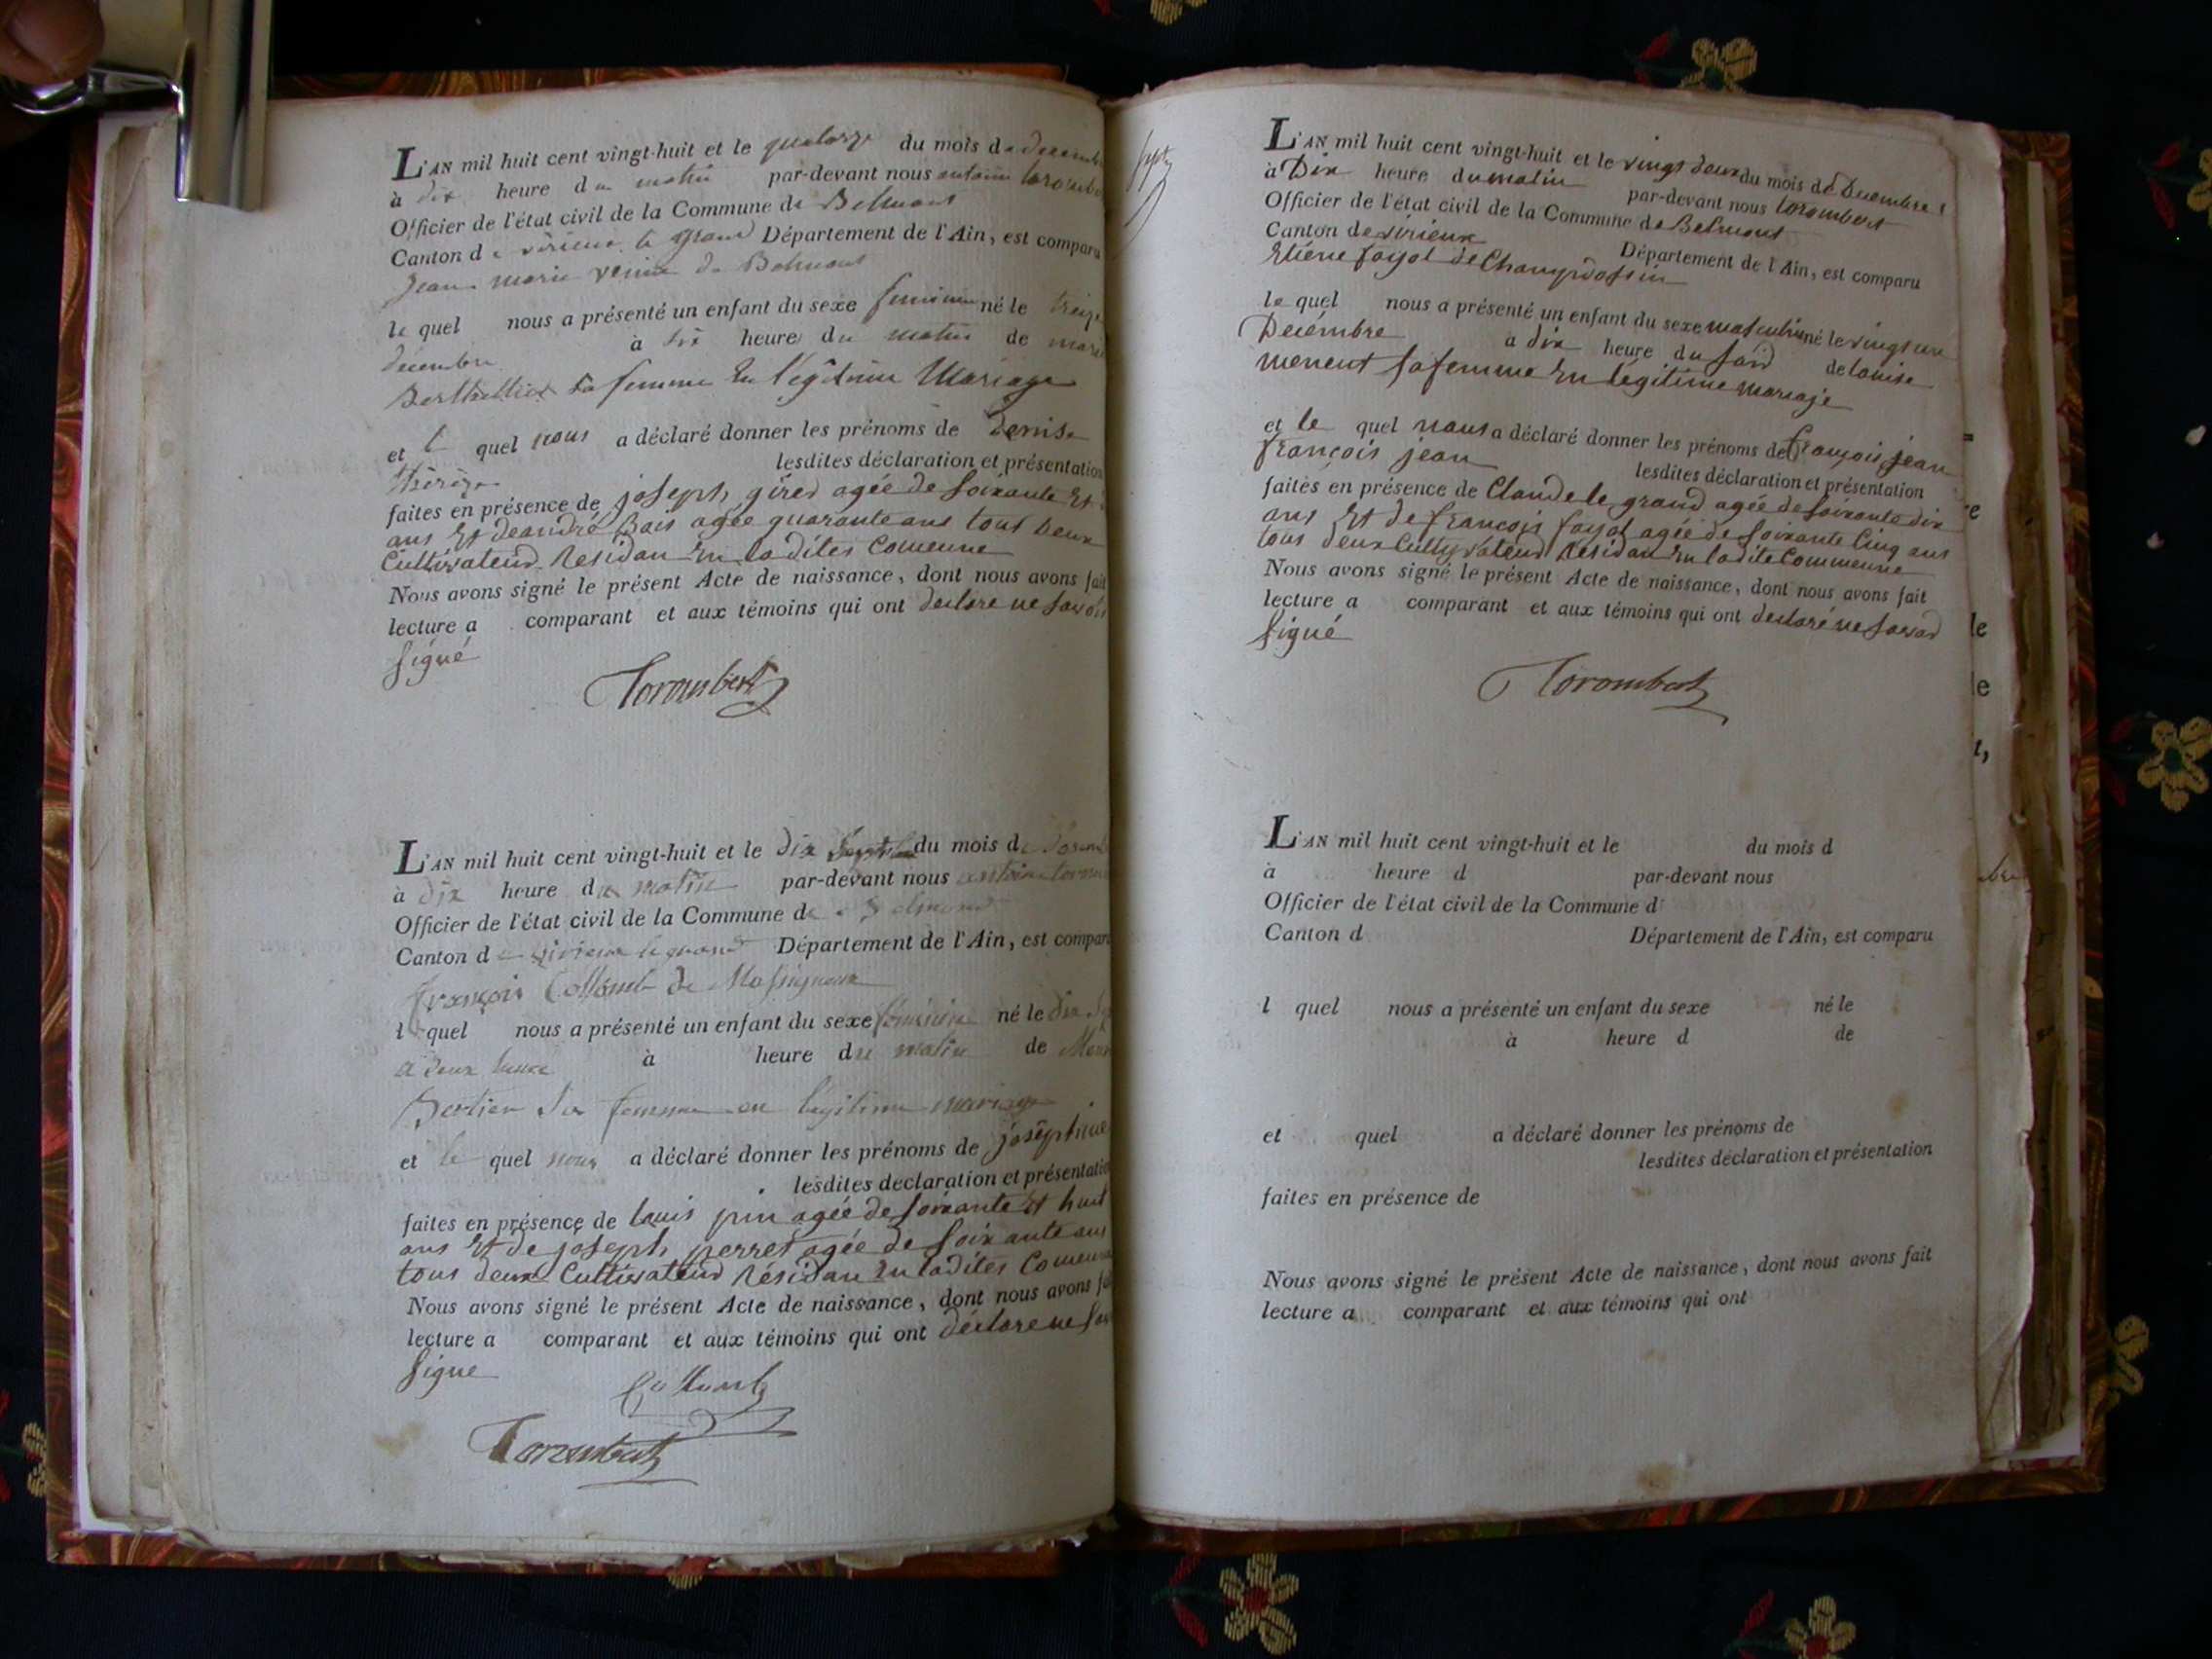 L'AN mil huit cent vingt-huit et le quatorze du mois de decembre
à dix heure du matin par-devant nous antoine
Officier de l'état civil de la Commune de Belmont
Canton de virieux le grand Département de l'Ain, est comparu
Jean marie de Belmont
le quel nous a présenté un enfant du sexe feminin né le treize
decembre à dix heure du matin de marie
sa femme En légitime Mariage
et le quel nous a déclaré donner les prénoms de Denise
thérèze lesdites déclaration et présentation
faites en présence de joseph agée de soixante Et
ans Et de andré Bais agée quarante ans tous Deux
Cultivateurd Residan En la dites Comeune
Nous avons signé le présent Acte de naissance, dont nous avons fait
lecture a comparant et aux témoins qui ont declare ne savoir
signé
Torombert
L'AN mil huit cent vingt-huit et le dix du mois de
à dix heure du matin par-devant nous antoine
Officier de l'état civil de la Commune de Belmond
Canton de virieux le grand Département de l'Ain, est comparu
françois Collomb de Massigneux
l quel nous a présenté un enfant du sexe feminine né le dix
a deux heure à heure du matin de
Bertier sa femme en légitime mariage
et le quel nous a déclaré donner les prénoms de joséphine
lesdites declaration et présentation
faites en présence de louis agée de soixante Et huit
ans Et de joseph perret agée de soixante ans
tous deux Cultivateurd Résidan En la dites Comeune
Nous avons signé le présent Acte de naissance, dont nous avons fait
lecture a comparant et aux témoins qui ont déclare ne
signe
Collomb
Torombert
L'AN mil huit cent vingt-huit et le vingt deux du mois de Decembre
à Dix heure du matin par-devant nous torombert
Officier de l'état civil de la Commune de Belmont
Canton de virieux Département de l'Ain, est comparu
Etiene fayol de Champdossin
le quel nous a présenté un enfant du sexe masculin né le vingt un
Decembre a dix heure du soird de louise
sa femme En légitime mariaje
et le quel nous a déclaré donner les prénoms de françois jean
françois jean lesdites déclaration et présentation
faites en présence de Claude le grand agée de soixante dix
ans Et de francois fayol agée de soixante Cinq ans
tous deux Cultyvateurd Residan En la dite Commeune
Nous avons signé le présent Acte de naissance, dont nous avons fait
lecture a comparant et aux témoins qui ont declaré ne
signé
Torombert
L'AN mil huit cent vingt-huit et le du mois d
à heure d par-devant nous
Officier de l'état civil de la Commune d
Canton d Département de l'Ain, est comparu
l quel nous a présenté un enfant du sexe né le
à heure d de
et quel a déclaré donner les prénoms de
lesdites déclaration et présentation
faites en présence de
Nous avons signé le présent Acte de naissance, dont nous avons fait
lecture a comparant et aux témoins qui ont